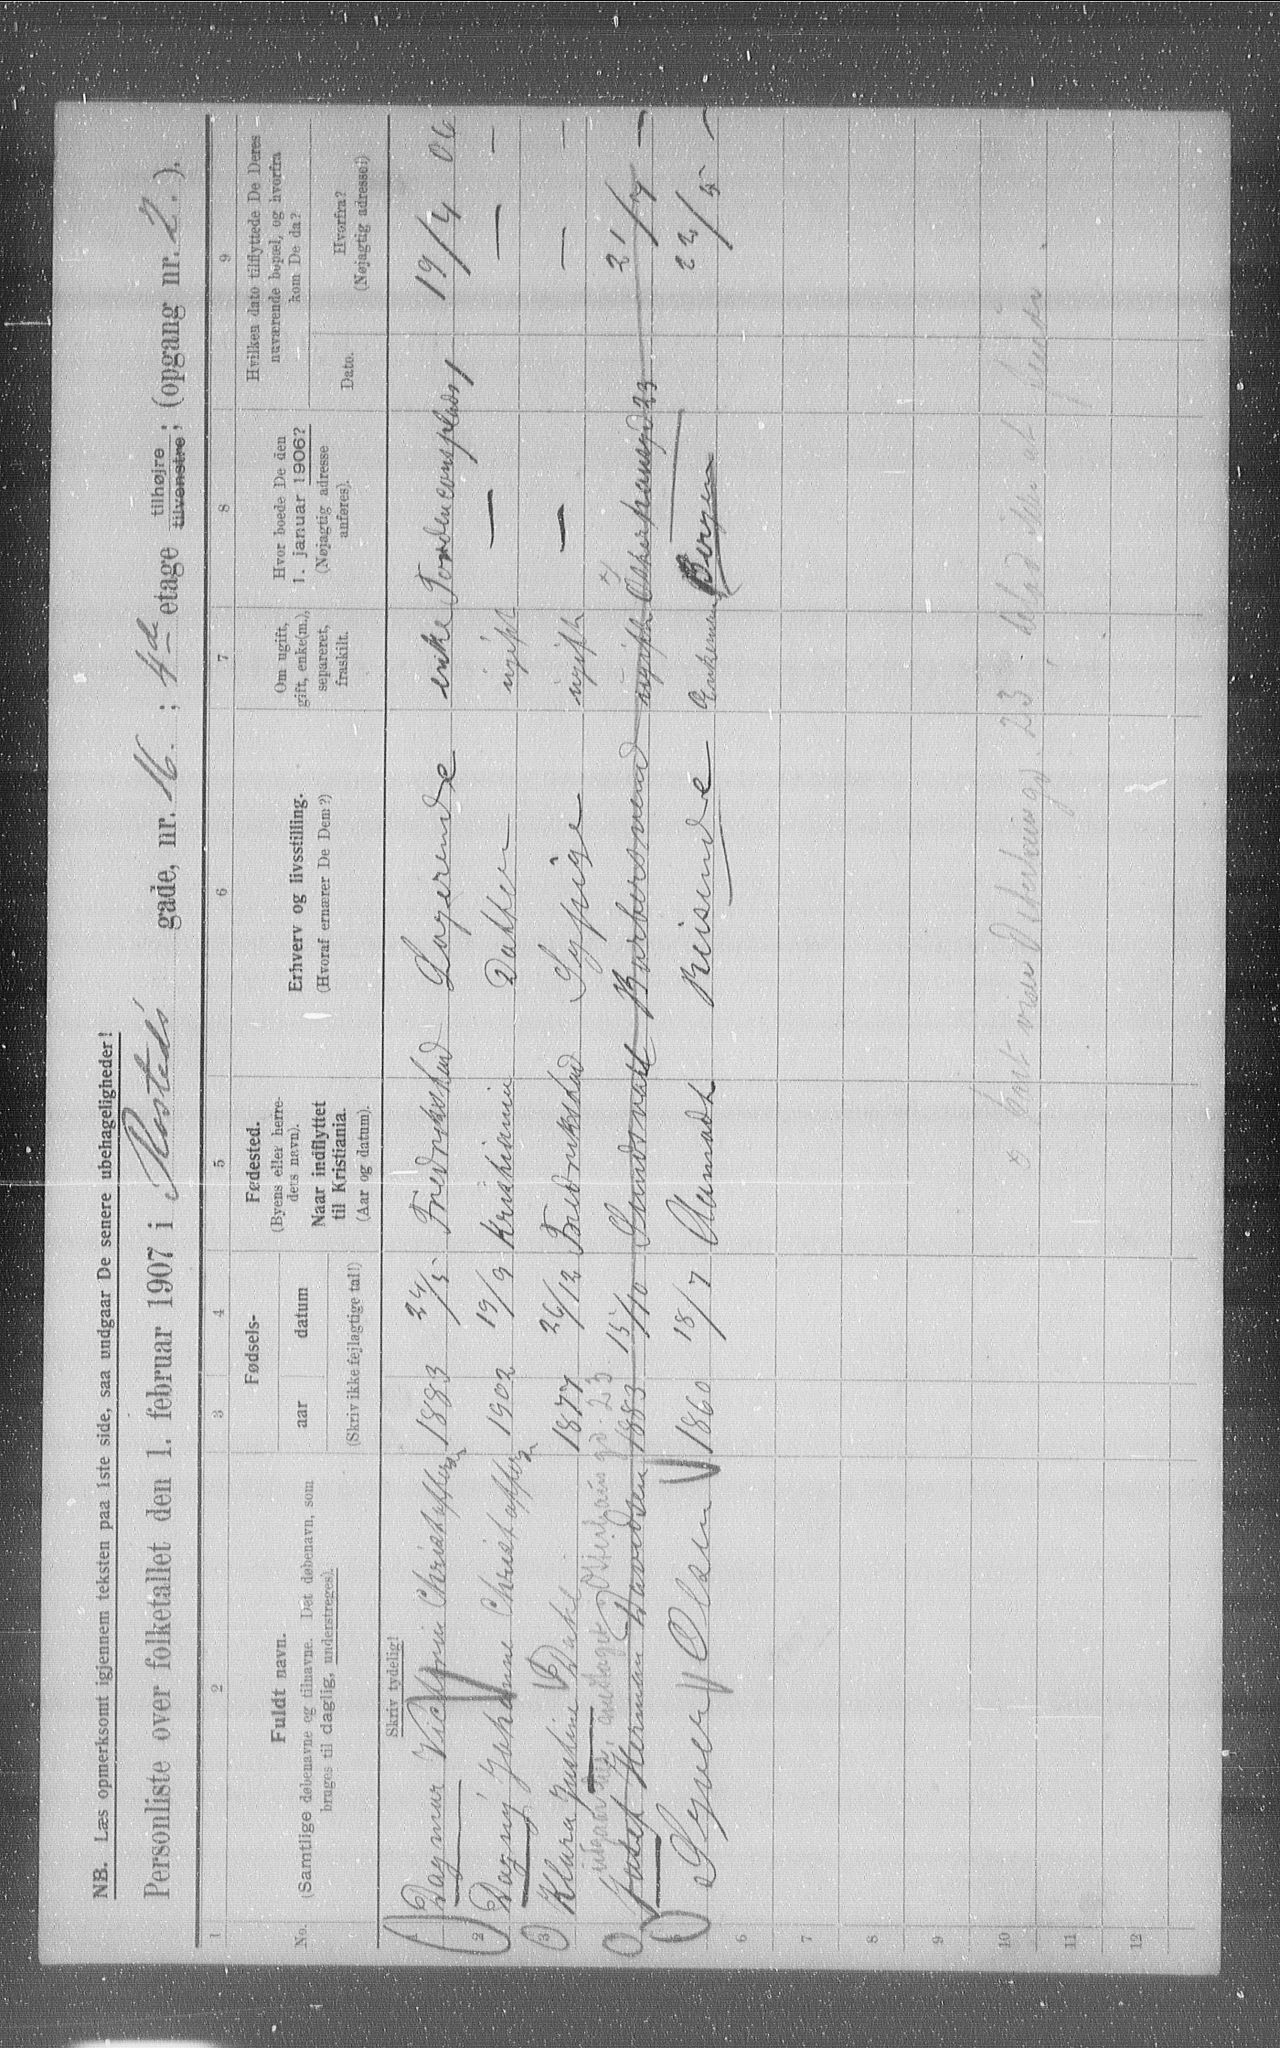 NB. Læs opmerksomt igjennem teksten paa 1ste side, saa undgaar De senere ubehageligheder!
Personliste over folketallet den 1. februar 1907 i Rosteds gade, nr. 16. ; 4de etage tilhøjre tilvenstre ; (opgang nr. 2.).
1 2 3 4 5 6 7 8 9
No.
Fuldt navn.
(Samtlige døbenavne og tilnavne. Det døbenavn, som
bruges til daglig, understreges).
Fødsels-
aar datum
(Skriv ikke fejlagtige tal!)
Fødested.
(Byens eller herre-
dets navn).
Naar indflyttet
til Kristiania.
(Aar og datum).
Erhverv og livsstilling.
(Hvoraf ernærer De Dem?)
Om ugift,
gift, enke(m.),
separeret,
fraskilt.
Hvor boede De den
1. januar 1906?
(Nøjagtig adresse
anføres).
Hvilken dato tilflyttede De Deres
nuværende bopæl, og hvorfra
kom De da?
Dato.
Hvorfra?
(Nøjagtig adresse!)
Skriv tydelig!
1 Dagmar Christoffersen 1883 24/5 Fredrikstad Logerende enke Tordenson plads 1 19/4 06
2 Dagny Johanne Christoffersen 1902 19/9 Kristiania Datter ugift — — —
3 Klara Justine Dahl 1877 26/12 Fredrikstad Sypige ugift — — —
udgaar, Osterhausgd. 23.
Josef Herman Davidsen 1883 15/10 Sundsvall Barbersvend ugift Osterhausgd 23 21/7 —
5 Olsen 1860 18/7 Reisende Enkemand Bergen 22/5 —
6
7
8
9
10 23
11
12